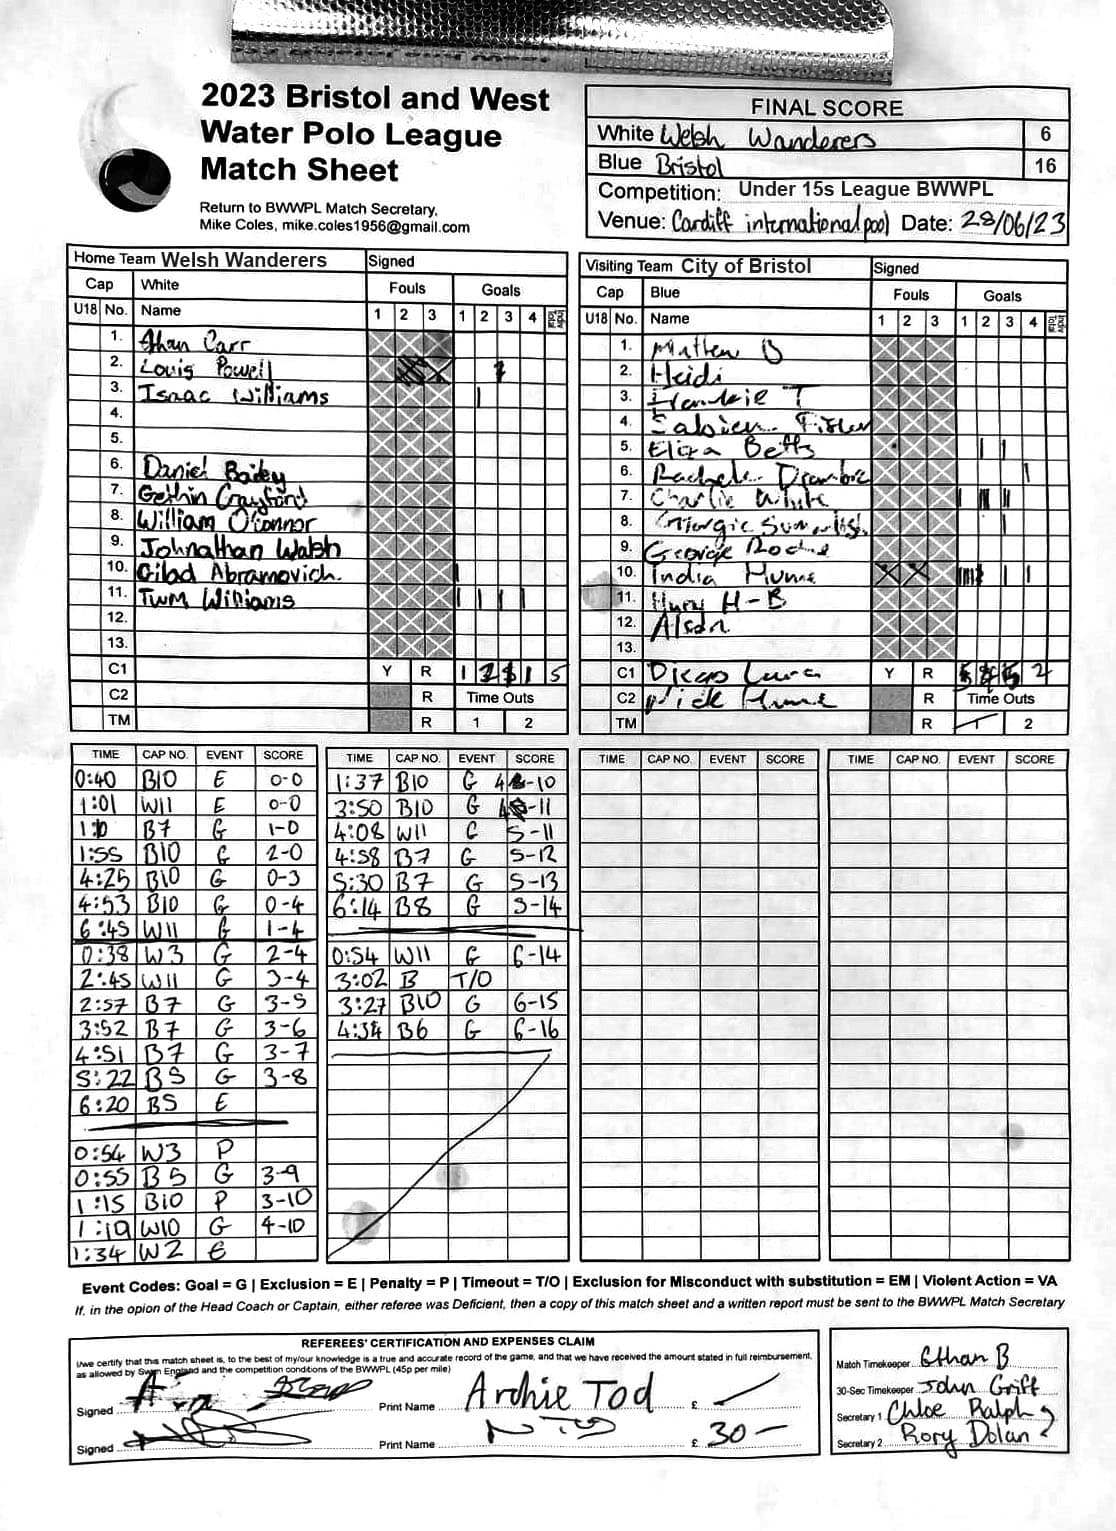 2023 Bristol and West
Water Polo League
Match Sheet
Return to BWWPL Match Secretary,
Mike Coles, mike.coles1956@gmail.com
FINAL SCORE
White Welsh Wanderers 6
Blue Bristol 16
Competition: Under 15s League BWWPL
Venue: Cardiff international pool Date: 28/06/23
Home Team Welsh Wanderers Signed
Cap White Fouls Goals
U18 No. Name 1 2 3 1 2 3 4 Indiv Total
1. Ethan Carr
2. Louis Powell
3. Isaac Williams
4.
5.
6. Daniel Bailey
7. Gethin Crayford
8. William O'Connor
9. Johnathan Walsh
10. Gilad Abramovich.
11. TWM Williams
12.
13.
C1 Y R 1 2 1 5
C2 R Time Outs
TM R 1 2
Visiting Team City of Bristol Signed
Cap Blue Fouls Goals
U18 No. Name 1 2 3 1 2 3 4 Indiv Total
1. Matthew B
2. Heidi
3. Frankie T
4. Fisher
5. Eliza Betts
6.
7. Charlie White
8.
9. George Roche
10. India Hume
11. H-B
12.
13.
C1 Diego Y R 2
C2 Nick Hume R Time Outs
TM R 1 2
TIME CAP NO. EVENT SCORE
0:40 B10 E 0-0
1:01 W11 E 0-0
B7 G 1-0
1:55 B10 G 2-0
4:25 B10 G 0-3
4:53 B10 G 0-4
6:45 W11 G 1-4
0:38 W3 G 2-4
2:45 W11 G 3-4
2:57 B7 G 3-5
3:52 B7 G 3-6
4:51 B7 G 3-7
5:22 B5 G 3-8
6:20 B5 E
0:54 W3 P
0:55 B5 G 3-9
1:15 B10 P 3-10
1:19 W10 G 4-10
1:34 W2 E
TIME CAP NO. EVENT SCORE
1:37 B10 G 4-10
3:50 B10 G 4-11
4:08 W11 G 5-11
4:58 B7 G 5-12
5:30 B7 G 5-13
6:14 B8 G 5-14
0:54 W11 G 6-14
3:02 B T/O
3:27 B10 G 6-15
4:34 B6 G 6-16
TIME CAP NO. EVENT SCORE
TIME CAP NO. EVENT SCORE
Event Codes: Goal = G | Exclusion = E | Penalty = P | Timeout = T/O | Exclusion for Misconduct with substitution = EM | Violent Action = VA
If, in the opion of the Head Coach or Captain, either referee was Deficient, then a copy of this match sheet and a written report must be sent to the BWWPL Match Secretary
REFEREES' CERTIFICATION AND EXPENSES CLAIM
I/we certify that this match sheet is, to the best of my/our knowledge is a true and accurate record of the game, and that we have received the amount stated in full reimbursement,
as allowed by Swim England and the competition conditions of the BWWPL (45p per mile)
Signed Print Name Archie Tod £
Signed Print Name £ 30-
Match Timekeeper Ethan B
30-Sec Timekeeper John Griff
Secretary 1 Chloe Ralph
Secretary 2 Rory Dolan